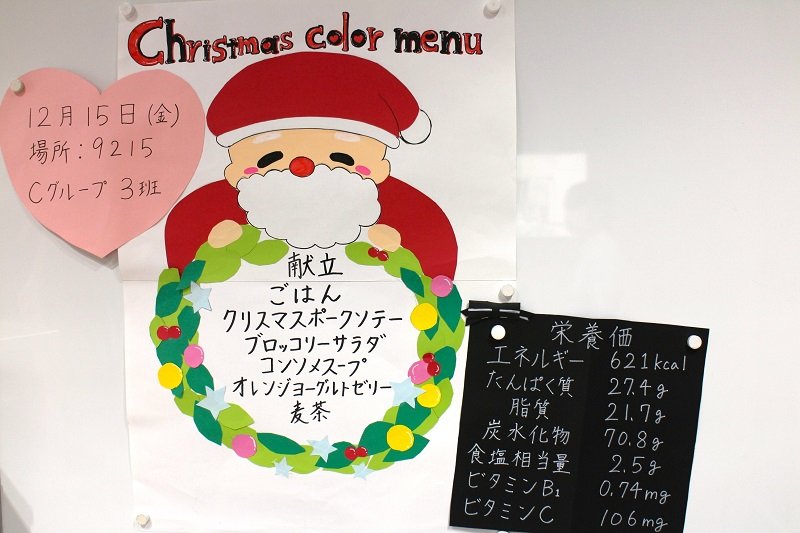 Christmas color menu
12月15日(金)
場所:9215
Cグループ 3班
献立
ごはん
クリスマスポークソテー
ブロッコリーサラダ
コンソメスープ
オレンジヨーグルトゼリー
麦茶
栄養価
エネルギー 621kcal
たんぱく質 27.4g
脂質 21.7g
炭水化物 70.8g
食塩相当量 2.5g
ビタミンB₁ 0.74mg
ビタミンC 106mg